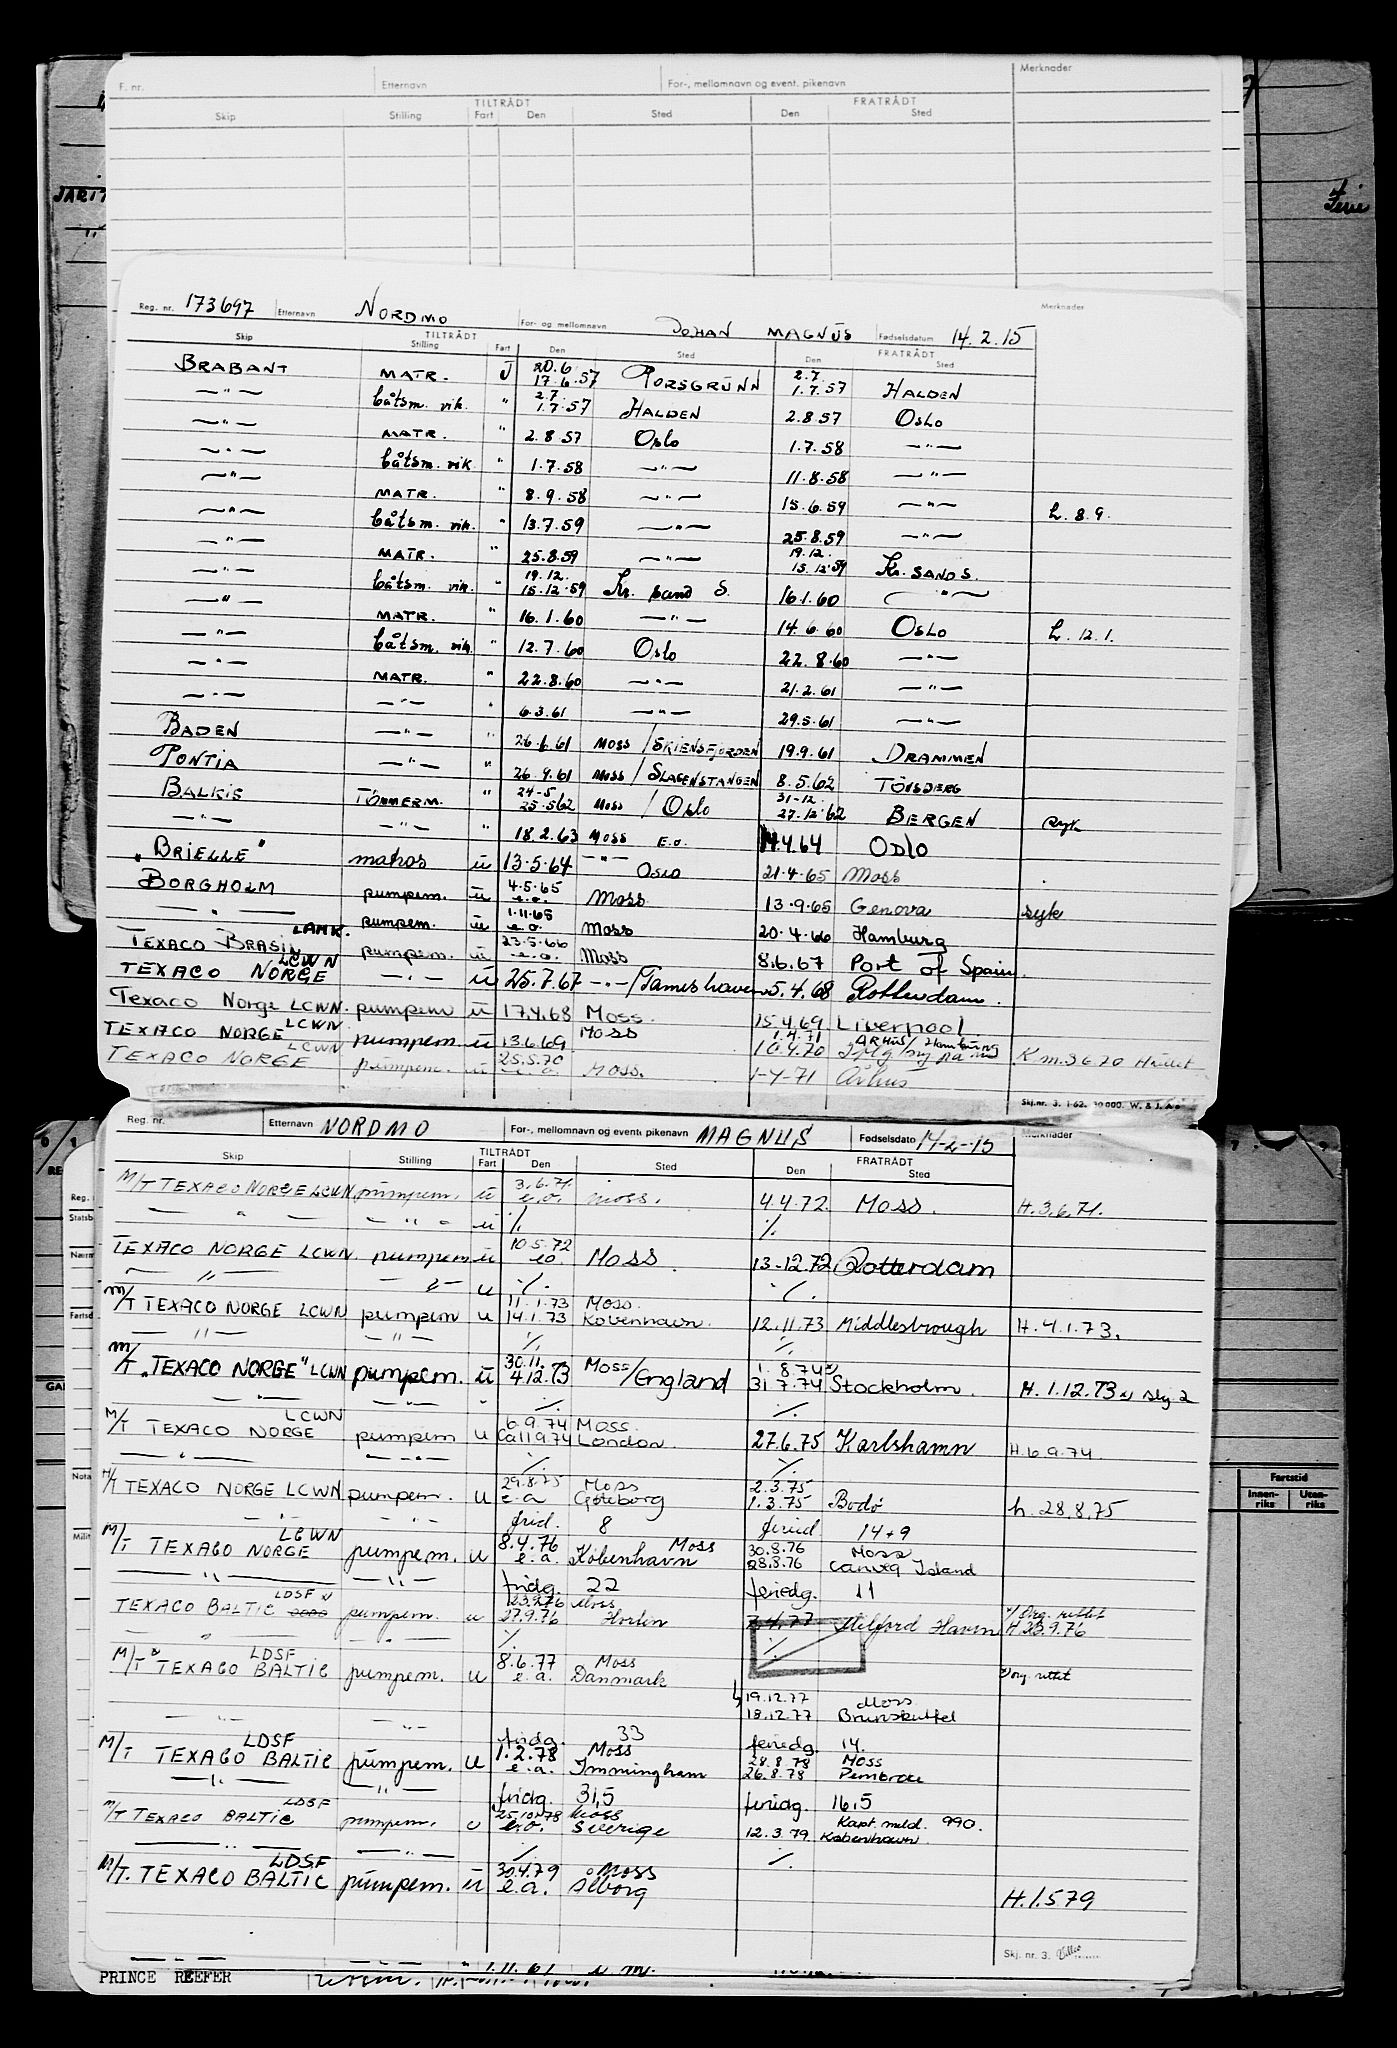 F. nr. Etternavn For-, mellomnavn og event. pikenavn Merknader
TILTRÅDT FRATRÅDT
Skip Stilling Fart Den Sted Den Sted
Ferie
Reg. nr. 173697 Etternavn NORDMO For- og mellomnavn JOHAN MAGNUS Fødselsdatum 14.2.15 Merknader
TILTRÅDT FRATRÅDT
Skip Stilling Fart Den Sted Den Sted
BRABANT MATR. U 20.6 17.6.57 PORSGRUNN 2.7. 1.7.57 HALDEN
—"— båtsm. vik. " 2.7. 1.7.57 HALDEN 2.8.57 OSLO
—"— MATR. " 2.8.57 Oslo 1.7.58 —"—
—"— båtsm. vik. " 1.7.58 —"— 11.8.58 —"—
—"— MATR. " 8.9.58 —"— 15.6.59 —"— h. 8.9.
—"— båtsm. vik. " 13.7.59 —"— 25.8.59 —"—
—"— MATR. " 25.8.59 —"— 19.12. 15.12.59 Kr. SAND S.
—"— båtsm. vik. " 19.12. 15.12.59 Kr. sand S. 16.1.60 —"—
—"— MATR. " 16.1.60 —"— 14.6.60 OSLO h. 12.1.
—"— båtsm. vik. " 12.7.60 Oslo 22.8.60 —"—
—"— MATR. " 22.8.60 —"— 21.2.61 —"—
—"— —"— " 6.3.61 —"— 29.5.61 —"—
BADEN —"— " 26.6.61 MOSS / SKIENSFJORDEN 19.9.61 DRAMMEN
PONTIA —"— " 26.9.61 MOSS / SLAGENSTANGEN 8.5.62 TÖNSBERG
BALKIS TÖMMERM. " 24-5 25.5.62 MOSS / Oslo 31-12. 27.12.62 BERGEN syk
—"— —"— " 18.2.63 MOSS E.O. 14.4.64 OSLO
"BRIELLE" matros u 13.5.64 —"— Oslo 21.4.65 Moss
BORGHOLM pumpem. u 4.5.65 e.o. Moss 13.9.65 Genova syk
—"— pumpem. u 1.11.65 e.o. Moss 20.4.66 Hamburg
TEXACO BRASIL LAMK. pumpem. u 23.5.66 e.o. Moss 8.6.67 Port of Spain.
TEXACO NORGE LCWN —"— u 25.7.67 —"—/Tameshaven 5.4.68 Rotterdam.
Texaco Norge LCWN. pumpem u 17.4.68 Moss. 15.4.69 Liverpool.
TEXACO NORGE LCWN pumpem. u 13.6.69 Moss 1.4.71 10.4.70 ARHUS/Hamburg
TEXACO NORGE LCWN pumpem. u 25.5.70 e.o. Moss. 1-4-71 Århus
Skj.nr. 3. 1-62. 30 000. W. & J. A.s
Reg. nr. Etternavn NORDMO For-, mellomnavn og event. pikenavn MAGNUS Fødselsdato 14-2-15 Merknader
TILTRÅDT FRATRÅDT
Skip Stilling Fart Den Sted Den Sted
M/T TEXACO NORGE LCWN pumpem. u 3.6.71. e.o. Moss. 4.4.72. Moss. H.3.6.71.
—"— —"— u ./. ./.
TEXACO NORGE LCWN. pumpem u 10.5.72 eo. Moss. 13-12.72 Rotterdam
—"— —"— u ./. ./.
M/T TEXACO NORGE LCWN pumpem u 11.1.73 14.1.73 Moss. København. 12.11.73 Middlesbrough H.4.1.73.
—"— —"— ./. ./.
M/T "TEXACO NORGE" LCWN pumpem. u 30.11. 4.12.73 Moss/England 1.8.74 31.7.74 Stockholm. H.1.12.73
—"— —"— " ./. ./.
M/T TEXACO NORGE LCWN pumpem u 6.9.74 Ca11.9.74 Moss. London. 27.6.75 Karlshamn H.6.9.74
—"— —"— ./. ./.
M/T TEXACO NORGE LCWN pumpem. u 29.8.75 e.a Moss Göteborg 2.3.75 1.3.75 Bodö h. 28.8.75
—"— —"— frid. 8 feried 14+9
M/T TEXACO NORGE LCWN pumpem. u 8.4.76 e.a. Moss København 30.8.76 28.8.76 Moss Canvey Island
—"— —"— fridg. 22 feriedg. 11
TEXACO BALTIC LDSF pumpem. u 23.9.76 27.9.76 Moss Horten 7.4.77 Milford Haven Org. rettet H 23.9.76
—"— —"— ./. ./.
M/T TEXACO BALTIC LDSF pumpem. u 8.6.77 e.a. Moss Danmark org. rettet
19.12.77 Moss
18.12.77 Brunsbüttel
—"— —"— fridg. 33 feriedg. 14.
M/T TEXACO BALTIC LDSF pumpem. u 1.2.78 e.a. Moss Immingham 28.8.78 26.8.78 Moss Pembroke
—"— —"— fridg. 31,5 feriedg. 16,5
M/T TEXACO BALTIC LDSF pumpem. u 25.10.78 e.o. Moss Sverige 12.3.79 Kapt. meld. 990. København.
—"— —"— ./. ./.
M/T. TEXACO BALTIC LDSF pumpem. u 30.4.79 e.a. Moss Ålborg H.1.579
Skj. nr. 3.
PRINCE REEFER 1.11.61
Fartstid
Innen-riks Uten-riks